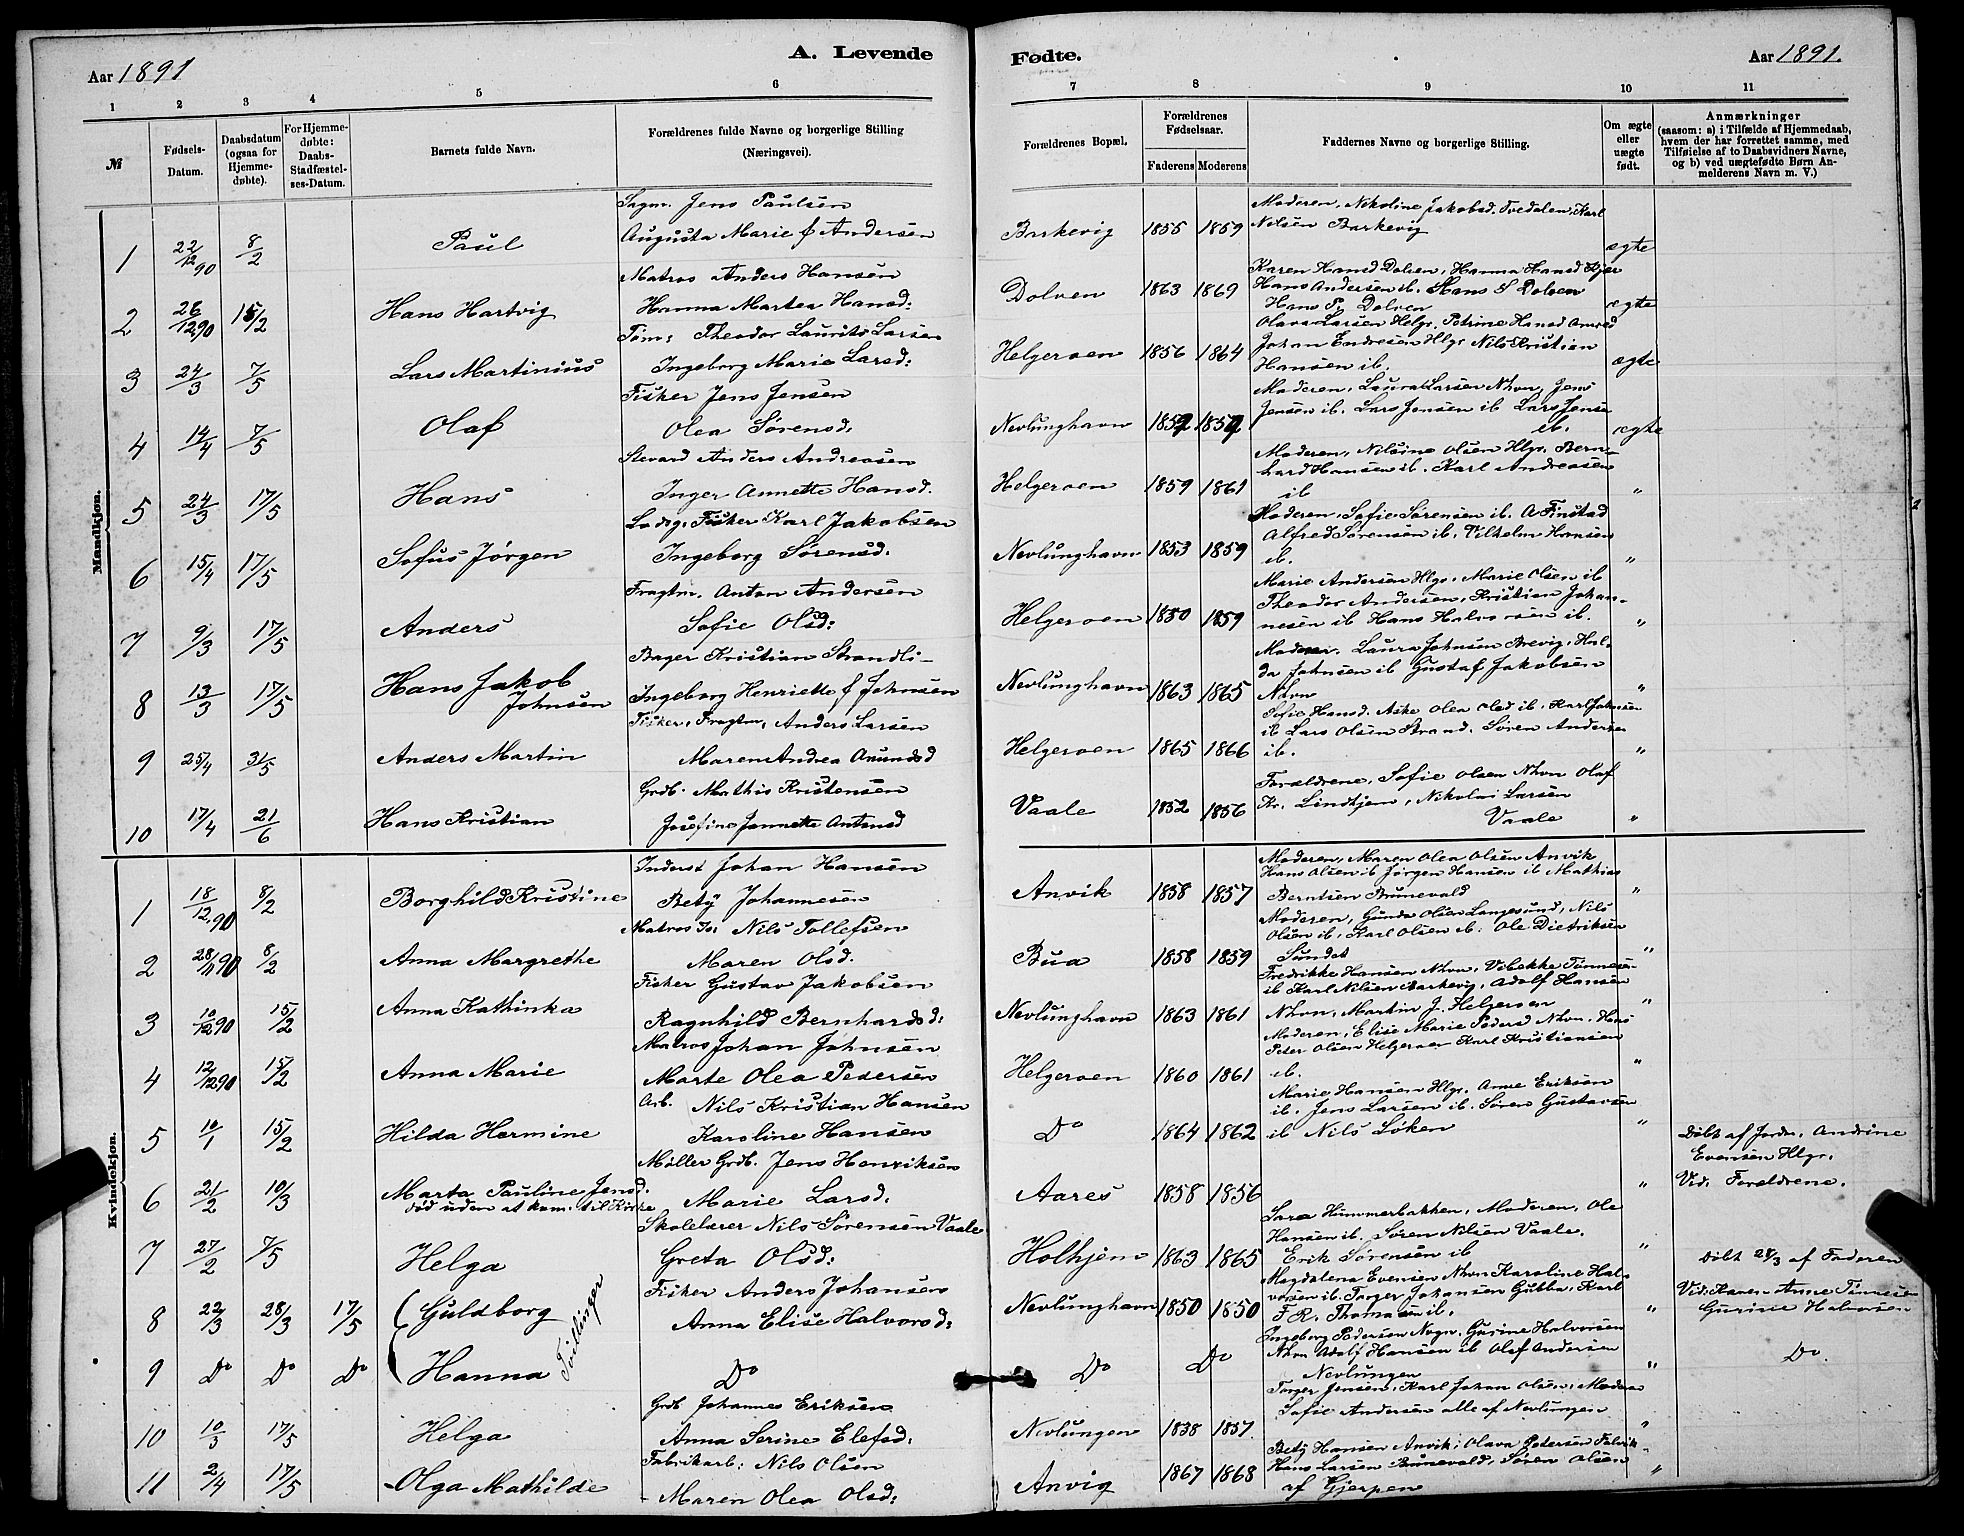 Aar 1891
A. Levende
Fødte.
Aar 1891.
1 2 3 4 5 6 7 8 9 10 11
№
Fødsels-Datum.
Daabsdatum (ogsaa for Hjemme-døbte).
For Hjemme-døbte: Daabs-Stadfæstel-ses-Datum.
Barnets fulde Navn.
Forældrenes fulde Navne og borgerlige Stilling (Næringsvei).
Forældrenes Bopæl.
Forældrenes Fødselsaar.
Faderens Moderens
Faddernes Navne og borgerlige Stilling.
Om ægte eller uægte født.
Anmærkninger
(saasom: a) i Tilfælde af Hjemmedaab, hvem der har forrettet samme, med Tilføielse af to Daabsvidners Navne, og b) ved uægtefødte Børn An-melderens Navn m. V.)
Mandkjøn.
1 22/12 90 8/2 Paul
Sagm. Jens Paulsen
Augusta Marie f Andersen
Barkevig 1855 1859
Moderen, Nikoline Jakobsd. Tvedalen, Karl
Nilsen Barkevig
ægte
2 26/12 90 15/2 Hans Hartvig
Matros Anders Hansen
Hanna Martea Hansd:
Dolven 1863 1869
Karen Hansd Dolven, Hanna Hansd Kjær
Hans Andersen ib. Hans S Dolven
Hans P. Dolven
ægte
3 24/3 7/5 Lars Martinius
Tøm: Theodor Laurits Larsen
Ingeborg Marie Larsd:
Helgeroen 1856 1864
Olava Larsen Helgr. Petrine Hansd
Johan Endresen Hlgr Nils Kristian
Hansen ib.
ægte
4 14/4 7/5 Olaf
Fisker Jens Jensen
Olea Sørensd.
Nevlunghavn
Moderen, Laura Larsen Nhvn, Jens
Jensen ib. Lars Jensen ib Lars Jensen
ib.
ægte
5 24/3 17/5 Hans
Stevard Anders Andreasen
Inger Annette Hansd.
Helgeroen 1859 1861
Moderen, Nilsine Olsen Hlgr. Bern-
hard Hansen ib. Karl Andreasen
ib
"
6 15/4 17/5 Sofus Jørgen
Lodsg. Fisker Karl Jakobsen
Ingeborg Sørensd.
Nevlunghavn 1853 1859
Moderen, Sofie Sørensen ib. A Finstad
Alfred Sørensen ib. Vilhelm Hansen
ib.
"
7 9/3 17/5 Anders
Fragtm. Anton Andersen
Sofie Olsd:
Helgeroen 1850 1859
Marie Andersen Hlgr. Marie Olsen ib
Theodor Andersen, Kristian Johan-
nesen ib Hans Halvorsen ib.
"
8 13/3 17/5 Hans Jakob
Johnsen
Bager Kristian Strandli-
Ingeborg Henriette f Johnsen
Nevlunghavn 1863 1865
Moderen. Laura Johnsen Brevig, Hul-
da Johnsen ib Gustaf Jakobsen
Nhvn
"
9 25/4 31/5 Anders Martin
Fisker, Fragtm, Anders Larsen
Maren Andrea Amundsd
Helgeroen 1865 1866
Sofie Hansd. Aske Olea Olsd ib. Karl Johnsen
ib Lars Olsen Strand. Søren Andersen
ib.
"
10 17/4 21/6 Hans Kristian
Grdb. Mathis Kristensen
Josefine Jonette Antonsd
Vaale 1852 1856
Forældrene, Sofie Olsen Nhvn Olaf
Kr. Lindhjem, Nikolai Larsen
Vaale
"
Kvindekjøn.
1 18/12 90 8/2 Borghild Kristine
Inderst Johan Hansen
Bety Johannesen
Anvik 1858 1857
Moderen, Maren Olea Olsen Anvik
Hans Olsen ib Jørgen Hansen ib Mathias
Berntsen Brunevald
"
2 28/11 90 8/2 Anna Margrethe
Matros Is: Nils Tollefsen
Maren Olsd.
Bua 1858 1859
Moderen, Gunda Olsen Langesund, Nils
Olsen ib. Karl Olsen ib. Ole Diedriksen
Sundet
"
3 10/12 90 15/2 Anna Kathinka
Fisker Gustav Jakobsen
Ragnhild Bernhardsd:
Nevlunghavn 1863 1861
Fredrikke Hansen Nhvn, Vibekke Tønnesen
ib Karl Nilsen Barkevig, Adolf Hansen
Nhvn, Martin J. Helgeroen
"
4 12/12 90 15/2 Anna Marie
Matros Johan Johnsen
Marte Olea Pedersen
Helgeroen 1860 1861
Moderen, Elise Marie Pedersd Nhvn. Hans
Peter Olsen Helgeroen Karl Kristiansen
ib.
"
5 10/1 15/2 Hilda Hermine
Arb. Nils Kristian Hansen
Karoline Hansen
Do 1864 1862
Marie Hansen Hlgr. Anne Eriksen
ib. Jens Larsen ib. Søren Gustavsen
ib Nils Løken
"
6 21/2 10/3 Marta Pauline Jensd.
død uden at kom. til Kirke
Møller Grdb. Jens Henriksen
Marie Larsd.
Aares 1858 1856
"
Døbt af Jordm. Andrine
Evensen Hlgr.
Vid. Forældrene.
7 27/2 7/5 Helga
Skolelærer Nils Sørensen Vaale
Greta Olsd:
Holhjem 1863 1865
Sara Hummerbakken, Moderen, Ole
Hansen ib. Søren Nilsen Vaale.
Erik Sørensen ib
"
Døbt 24/3 af Faderen
8 22/3 28/3 17/5 Guldborg
Tvillinger
Fisker Anders Johansen
Anna Elise Halvorsd:
Nevlunghavn 1850 1850
Magdalena Evensen Nhvn Karoline Hal-
vorsen ib. Torger Johansen Gubba, Karl
F. R. Thomasen ib.
"
Vid: Karen Anne Tønnesen
Gurine Halvorsen
9 Do Do Do Hanna
Do
Do Do
Ingeborg Pedersen Nvgn. Gurine Halvorsen
Nhvn Adolf Hansen ib Olaf Andersen
Nevlungen
"
Do.
10 10/3 17/5 Helga
Grdb Johannes Eriksen
Anna Serine Elefsd:
Nevlungen 1838 1857
Torger Jensen, Karl Johan Olsen, Moderen
Sofie Andersen alle af Nevlungen
"
11 2/4 17/5 Olga Mathilde
Fabrikarb: Nils Olsen
Maren Olea Olsd:
Anvig 1867 1868
Bety Hansen Anvik, Olava Petersen
Hans Larsen Brunevald, Søren Olsen
af Gjerpen
"